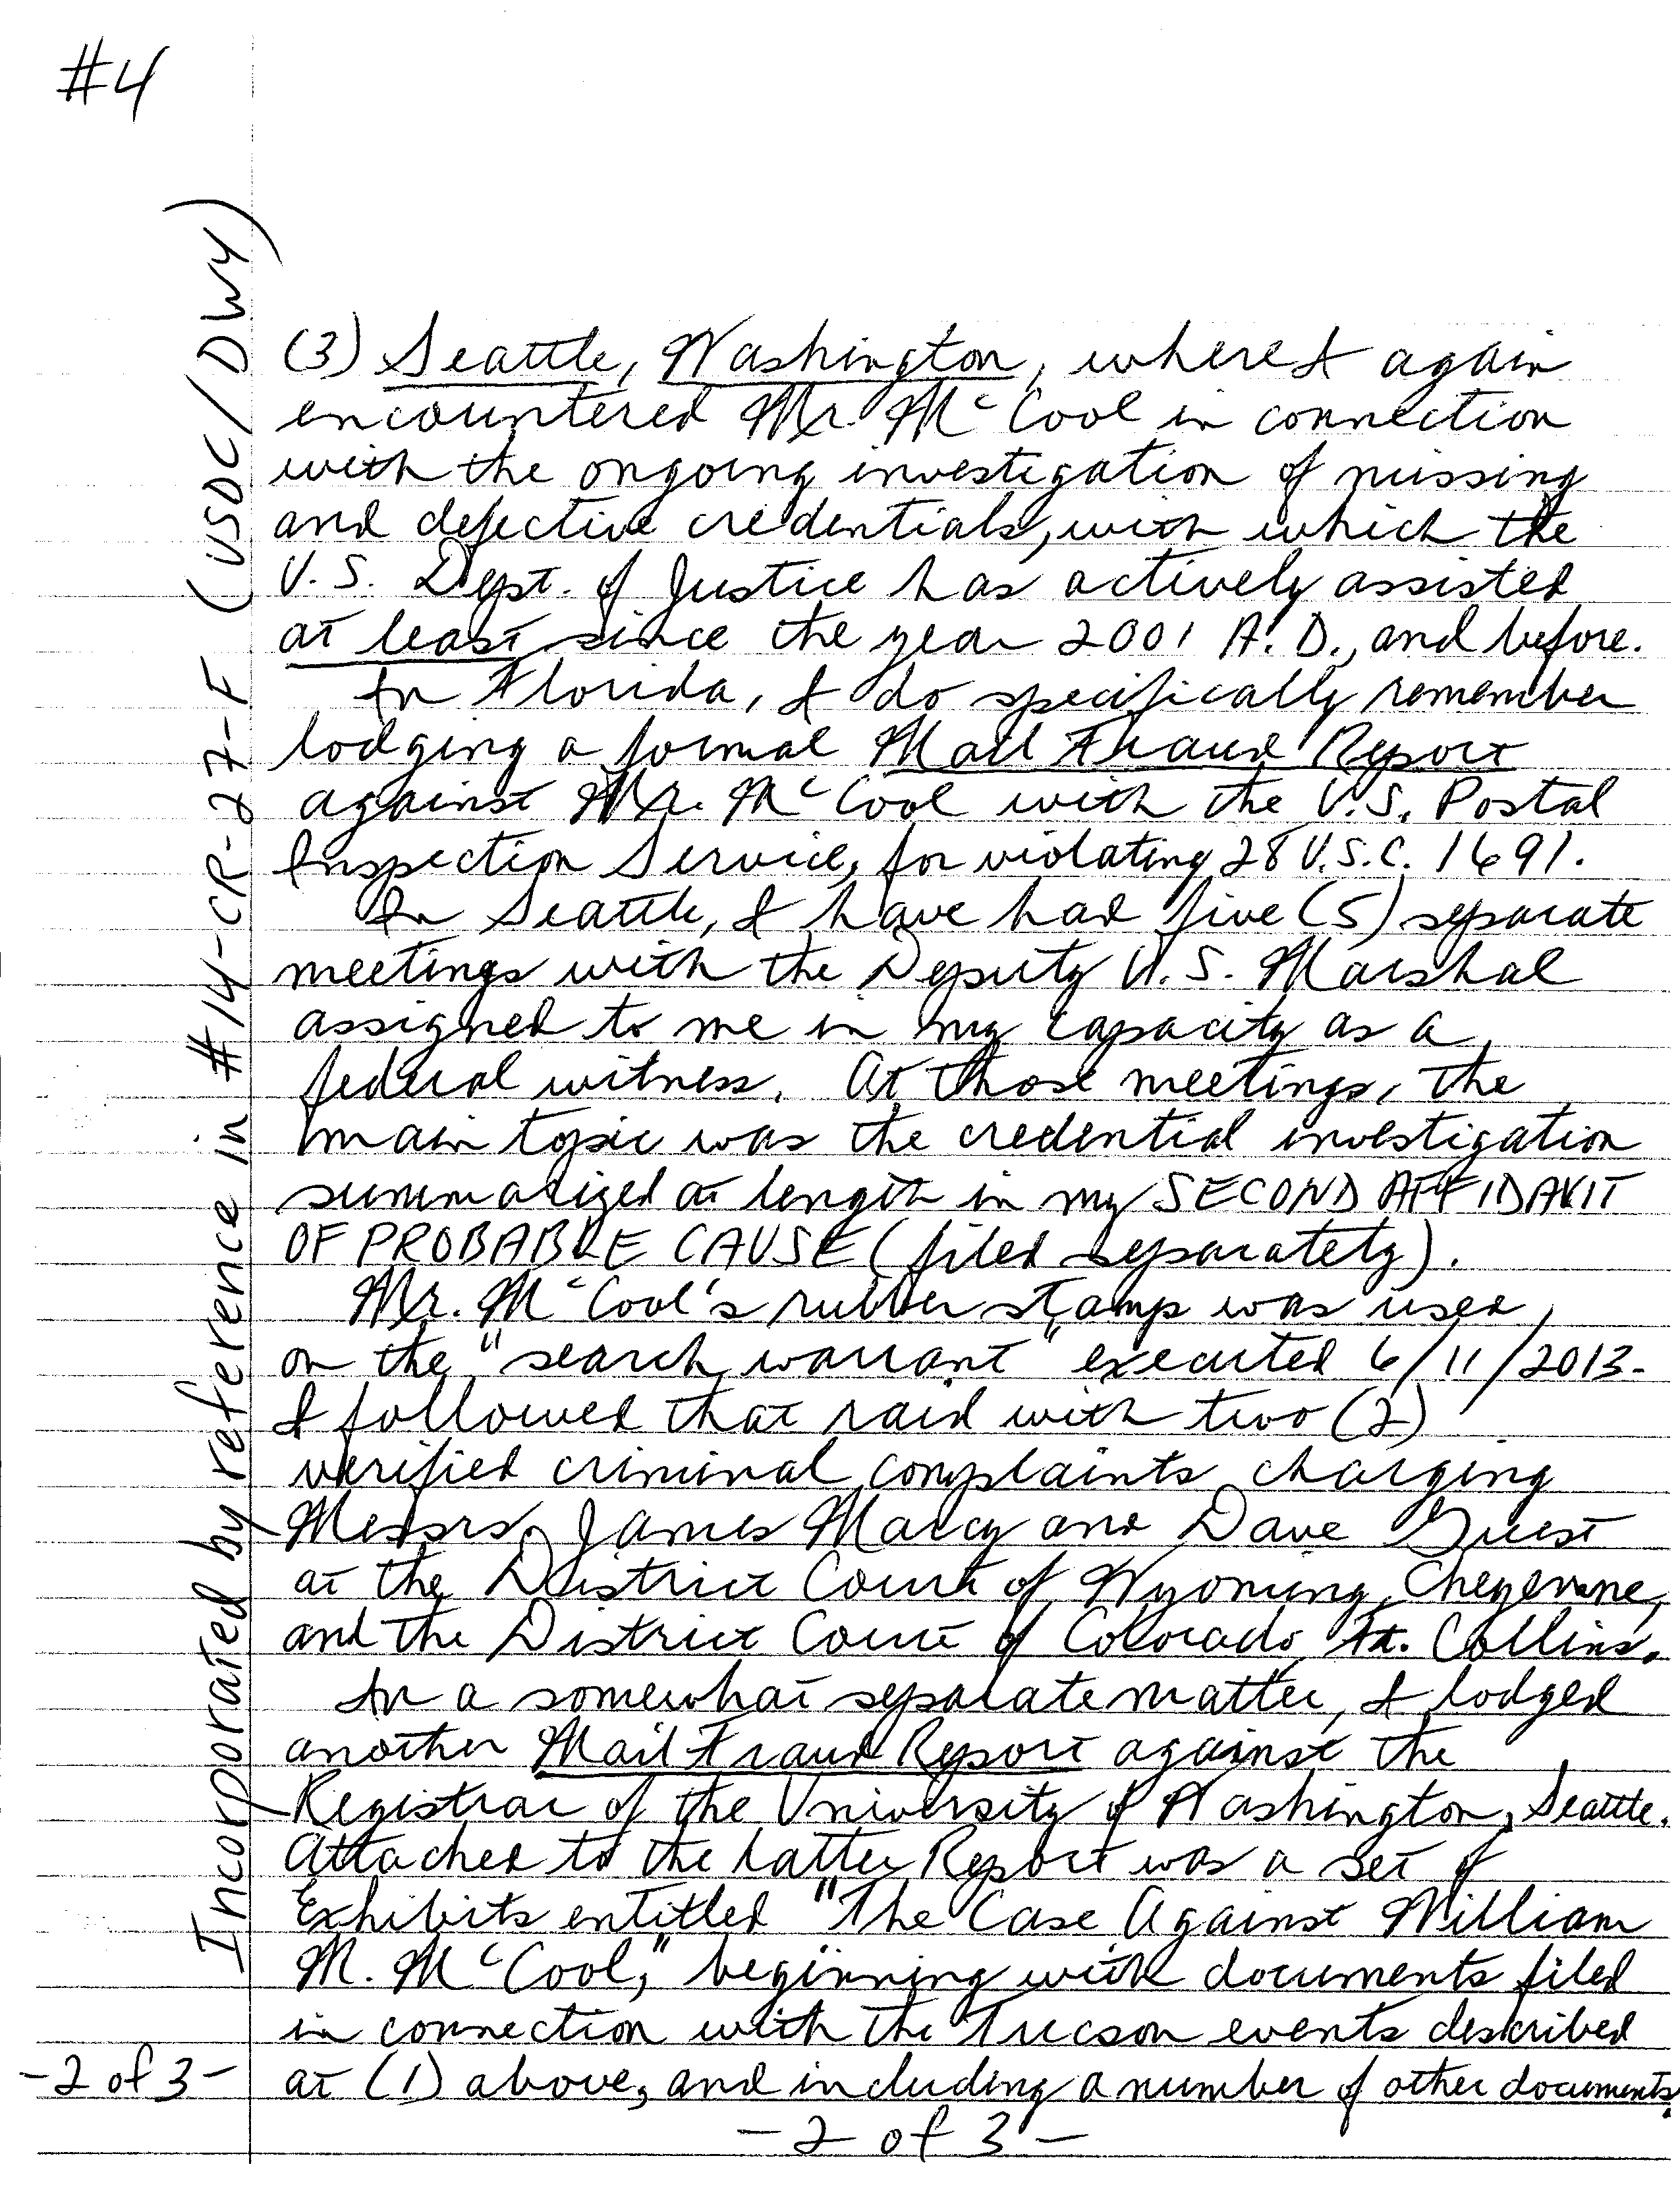 #4
Incorporated by reference in #14-CR-27-F (USDC/DWY)
(3) Seattle, Washington, where I again
encountered Mr. McCool in connection
with the ongoing investigation of missing
and defective credentials, with which the
U.S. Dept. of Justice has actively assisted
at least since the year 2001 A.D., and before.
In Florida, I do specifically remember
lodging a formal Mail Fraud Report
against Mr. McCool with the U.S. Postal
Inspection Service, for violating 28 U.S.C. 1691.
In Seattle, I have had five (5) separate
meetings with the Deputy U.S. Marshal
assigned to me in my capacity as a
federal witness. At those meetings, the
main topic was the credential investigation
summarized at length in my SECOND AFFIDAVIT
OF PROBABLE CAUSE (filed separately).
Mr. McCool's rubber stamp was used
on the "search warrant" executed 6/11/2013.
I followed that raid with two (2)
verified criminal complaints charging
Messrs. James Marcy and Dave Guest
at the District Court of Wyoming, Cheyenne,
and the District Court of Colorado, Ft. Collins.
In a somewhat separate matter, I lodged
another Mail Fraud Report against the
Registrar of the University of Washington, Seattle.
Attached to the latter Report was a set of
Exhibits entitled "The Case Against William
M. McCool," beginning with documents filed
in connection with the Tucson events described
at (1) above, and including a number of other documents.
-2 of 3-
-2 of 3-